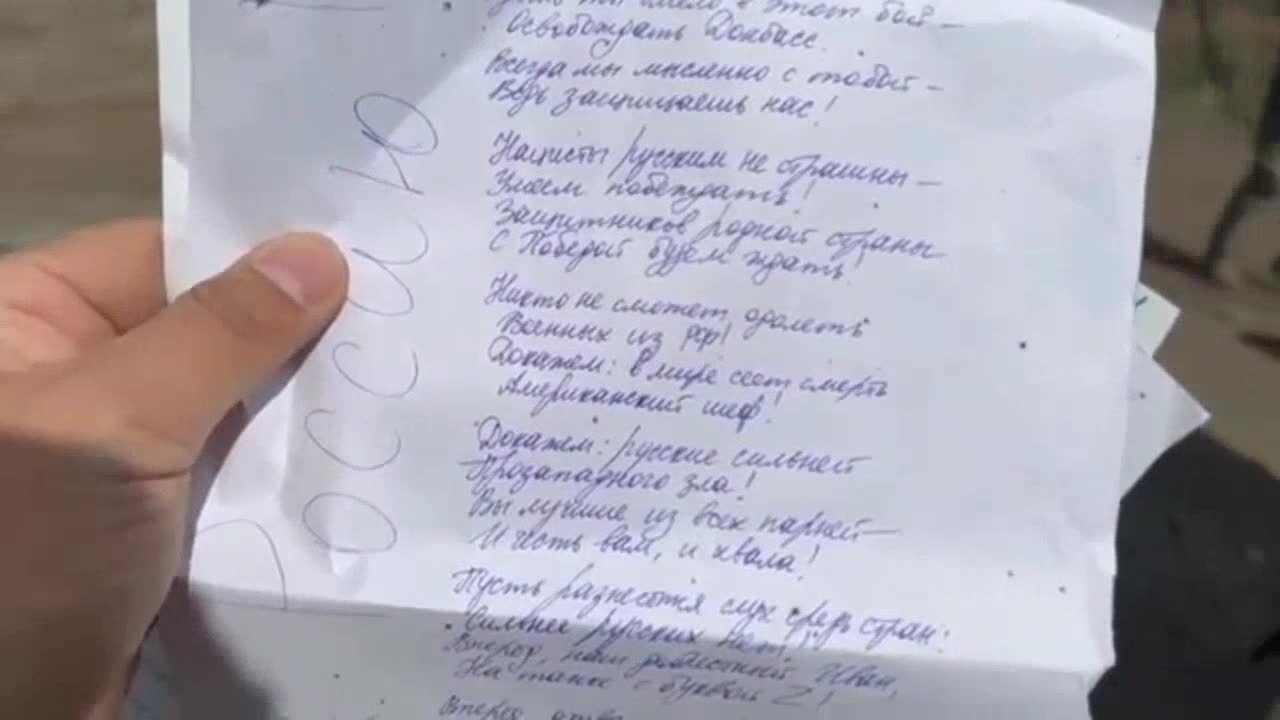 в этот бой –
Освобождать Донбасс.
Всегда мы мысленно с тобой –
Ведь защищаешь нас!
Нацисты русским не страшны –
Умеем побеждать!
Защитников родной страны
С Победой будем ждать!
Никто не сможет одолеть
Военных из РФ!
Докажем: в мире сеет смерть
Американский шеф!
Докажем: русские сильней
Прозападного зла!
Вы лучшие из всех парней –
И честь вам, и хвала!
Пусть разнесётся слух средь стран:
Сильнее русских нет!
Вперёд, наш доблестный Иван,
На танке с буквой Z!
Вперёд